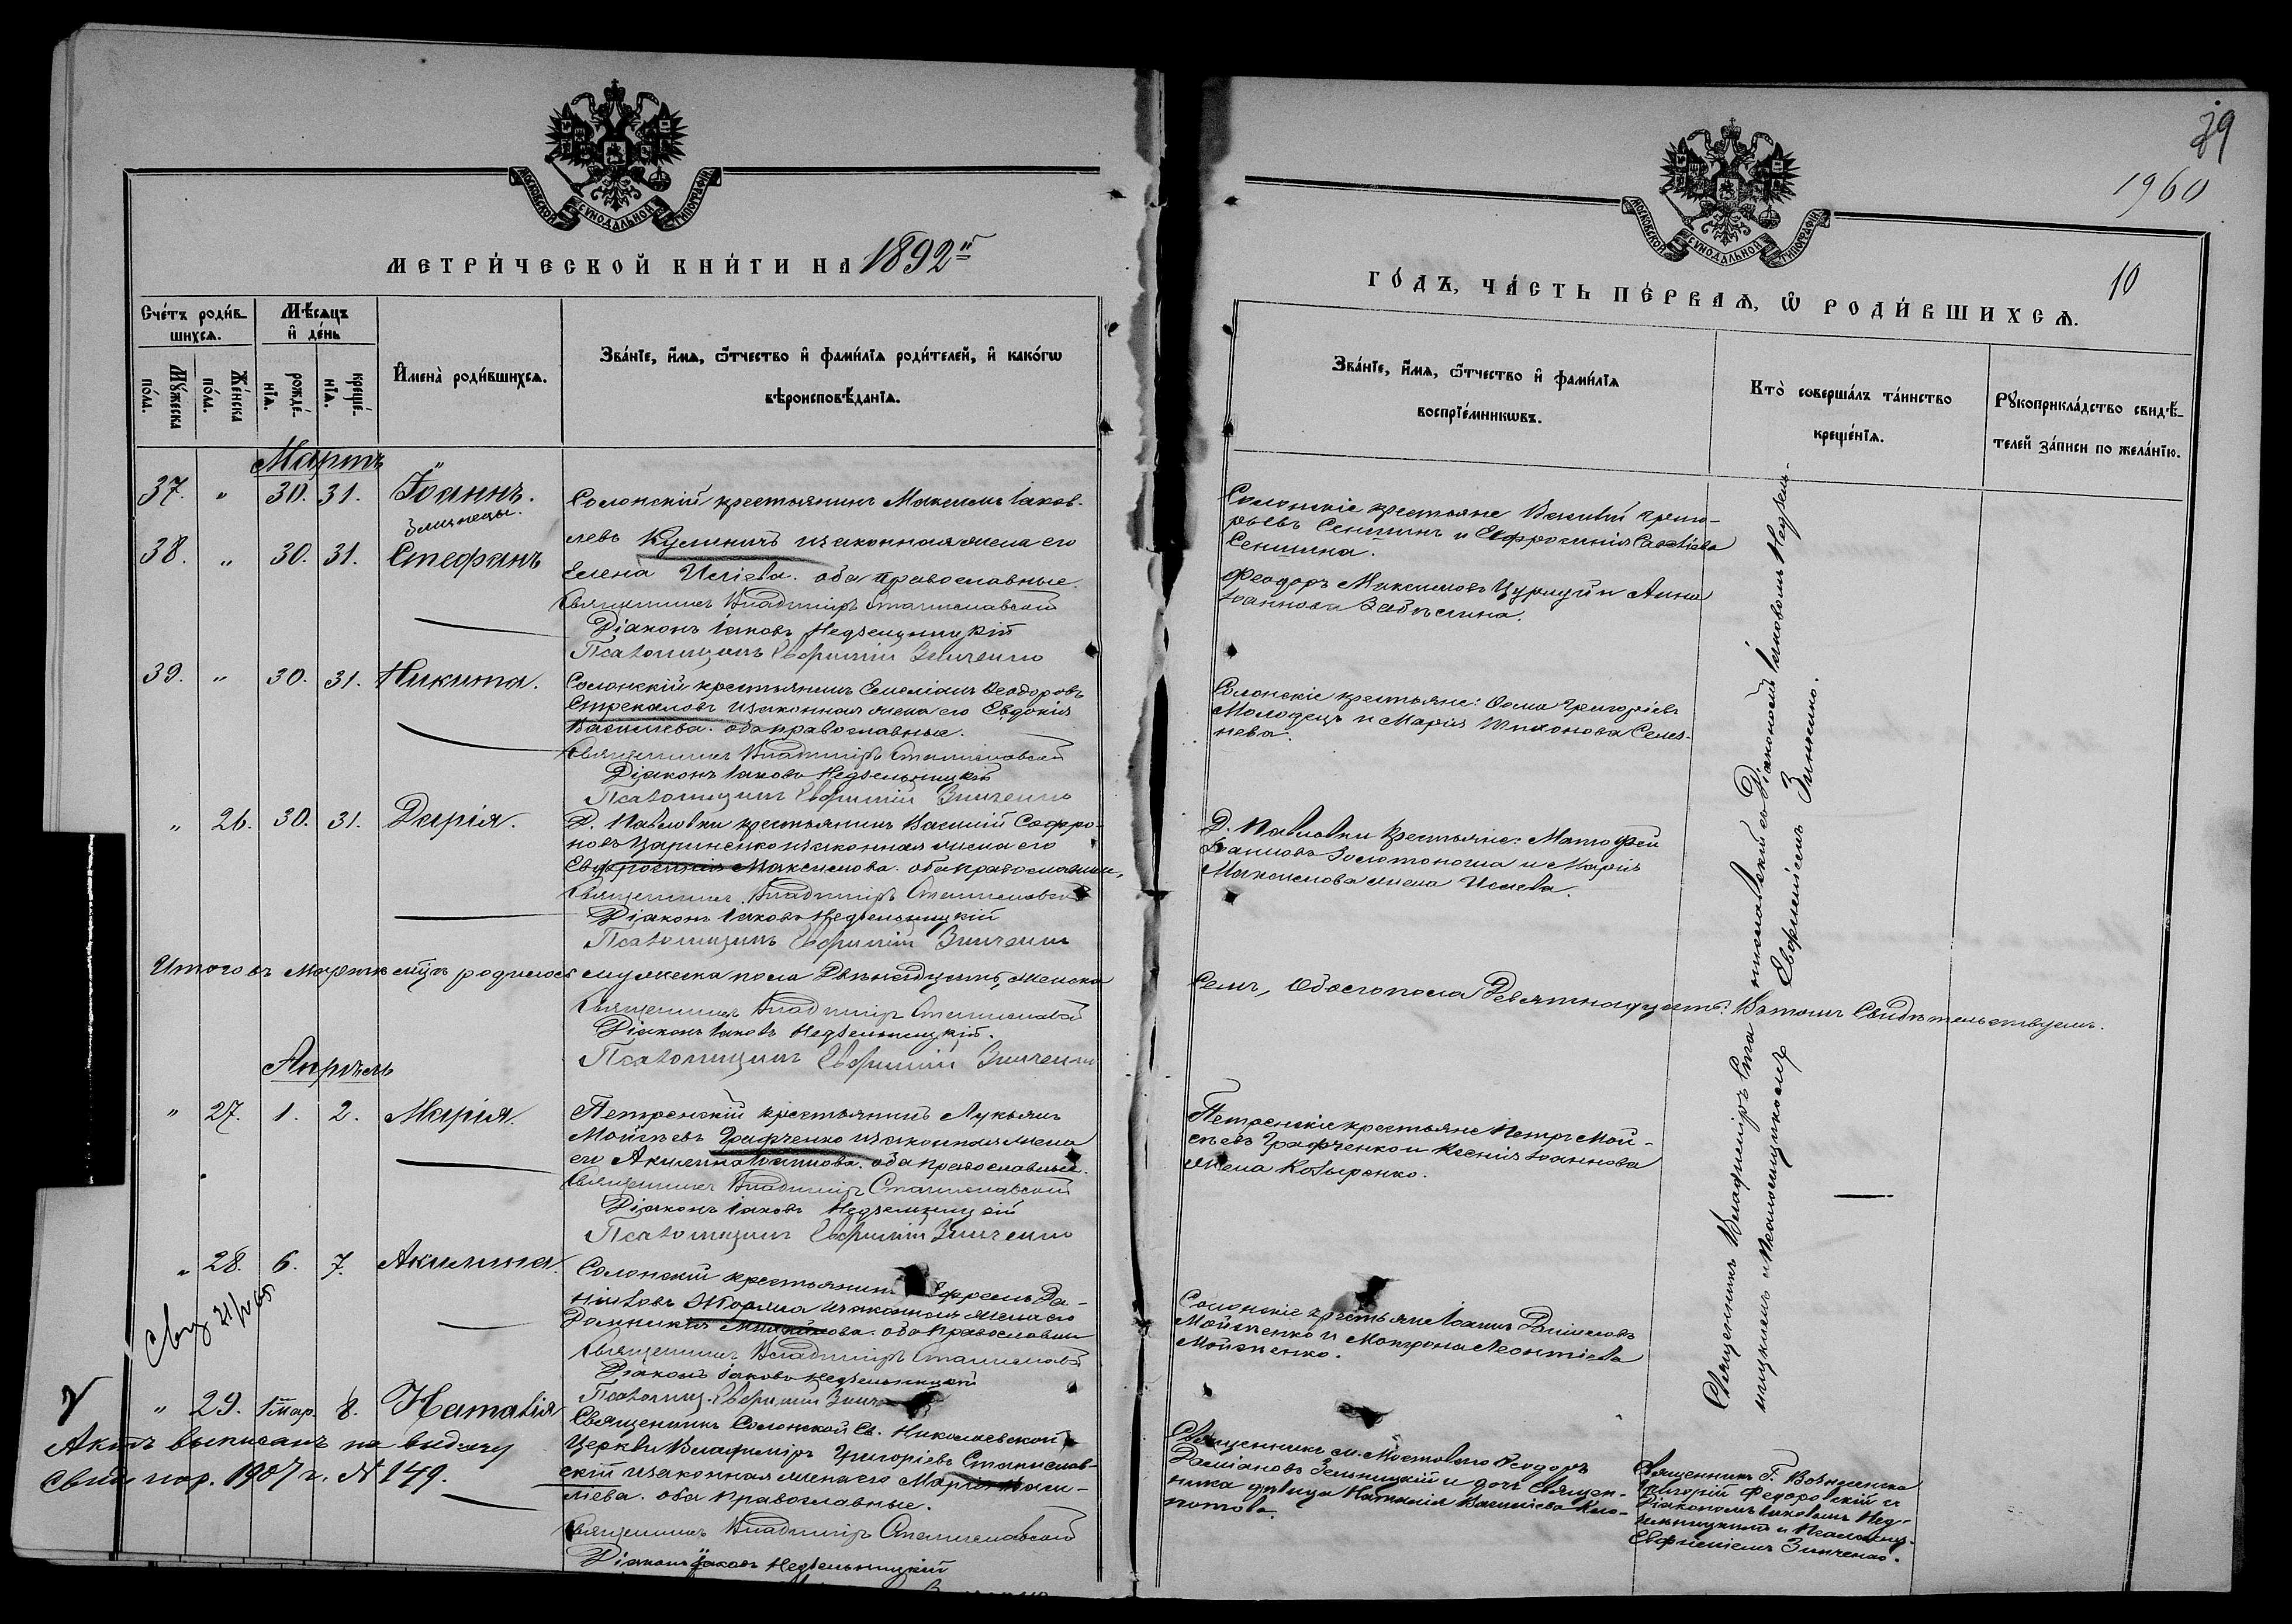 МОСКОВСКОЙ СѴНОДАЛЬНОЙ ТИПОГРАФІИ
МЕТРИ́ЧЕСКОЙ КНИ́ГИ НА 1892й
Сче́тъ роди́в-
шихсѧ.
Мѣ́сѧцъ
и҆ де́нь
Мꙋ́жеска
по́ла.
Же́нска
по́ла.
рожде́-
нїѧ.
креще́-
нїѧ.
И҆мена̀ роди́вшихсѧ.
Зва́нїе, и҆́мѧ, ѻ҆́тчество и҆ фами́лїѧ роди́телей, и҆ како́гѡ
вѣроисповѣ́данїѧ.
Мартъ
37. " 30. 31. Іоаннъ.
близнецы.
Солонскій крестьянинъ Максимъ Іаков-
38. " 30. 31. Стефанъ
левъ Кулиничъ и законная жена его
Елена Иліева. оба православные.
Священникъ Владиміръ Станиславскій
Діаконъ Іаковъ Недзельницкій
Псаломщикъ Евфимій Зинченко
39. " 30. 31. Никита.
Солонскій крестьянинъ Емеліанъ Ѳеодоровъ
Стрекаловъ и законная жена его Евдокія
Васильева. оба православные.
Священникъ Владиміръ Станиславскій
Діаконъ Іаковъ Недзельницкій
Псаломщикъ Евфимій Зинченко
" 26. 30. 31. Дарія.
Д. Павловки крестьянинъ Василій Софро-
новъ Цариненко и законная жена его
Евфросинія Максимова. оба православные,
Священникъ Владиміръ Станиславскій
Діаконъ Іаковъ Недзельницкій
Псаломщикъ Евфимій Зинченко
Итого въ Мартѣ м-цѣ родилось мужеска пола Двѣнадцать, женска
Священникъ Владиміръ Станиславскій
Діаконъ Іаковъ Недзельницкій.
Псаломщикъ Евфимій Зинченко
Апрѣль
" 27. 1. 2. Марія.
Петренскій крестьянинъ Лукьянъ
Мойсѣевъ Графченко и законная жена
его Акилина Іоаннова. оба православные.
Священникъ Владиміръ Станиславскій
Діаконъ Іаковъ Недзельницкій
Псаломщикъ Евфимій Зинченко
" 28. 6. 7. Акилина.
Солонскій крестьянинъ Ефремъ Да-
ниловъ и законная жена его
Домникія оба православные
Священникъ Владиміръ Станиславскій
Діаконъ Іаковъ Недзельницкій
Псаломщ. Евфимій Зинченко
" 29. 1 мар. 8. Наталія
Священникъ Солонской Св. Николаевской
Церкви Владиміръ Григорьевъ Станислав-
скій и законная жена его Марія Васи-
ліева. оба православные.
Священникъ Владиміръ Станиславскій
Діаконъ Іаковъ Недзельницкій
Актъ выписанъ на выдачу
1907 г. № 149.
39
1960
10
МОСКОВСКОЙ СѴНОДАЛЬНОЙ ТИПОГРАФІИ
ГО́ДЪ, ЧА́СТЬ ПЕ́РВАѦ, Ѡ҆ РОДИ́ВШИХСѦ.
Зва́нїе, и҆́мѧ, ѻ҆́тчество и҆ фами́лїѧ
воспрїе́мникѡвъ.
Кто̀ соверша́лъ та́инство
креще́нїѧ.
Рꙋкоприкла́дство свидѣ́-
телей за́писи по жела́нїю.
Солонскіе крестьяне Василій Григо-
рьевъ Сеншинъ и Евфросинія Савеліева
Сеншина.
Феодоръ Максимовъ и Анна
Іоаннова
Солонскіе крестьяне: Ѳома Григоріевъ
Молодецъ и Марія Тихонова Селез-
нева.
Д. Павловки Крестьяне: Матфей
Іоанновъ Золотоноша и Марія
Максимова жена
Семь, Обоего пола Девятнадцать: Въ томъ Свидѣтельствуемъ.
Петренскіе крестьяне Петръ Мой-
сѣевъ Графченко и Ксенія Іоаннова
жена Козыренко.
Солонскіе крестьяне Іоаннъ Даниловъ
Мойсѣенко и Матрона Леонтіева
Мойсѣенко.
Священникъ м. Мостового Ѳеодоръ
Даміановъ Зельницкій и дочь Священ-
ника дѣвица Наталія Василіева Кло-
потова.
Священникъ Владиміръ Станиславскій съ Діакономъ Іаковомъ Недзель-
ницкимъ и Псаломщикомъ Евфиміемъ Зинченко.
Священникъ Г. Вознесенска
Григорій Федоровскій съ
Діакономъ Іаковомъ Нед-
зельницкимъ и Псаломщ.
Евфиміемъ Зинченко.